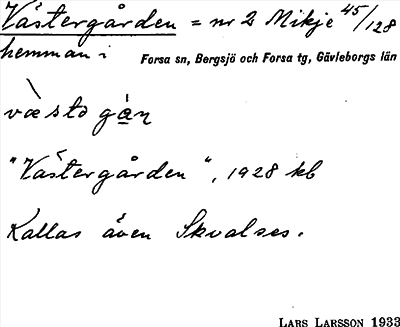 Västergården = nr 2 Mikje 45/128
hemman i Forsa sn, Bergsjö och Forsa tg, Gävleborgs län
væ̀stə gạ̄ṇ
"Västergården", 1928 kb
Kallas även Skvalses.
LARS LARSSON 1933